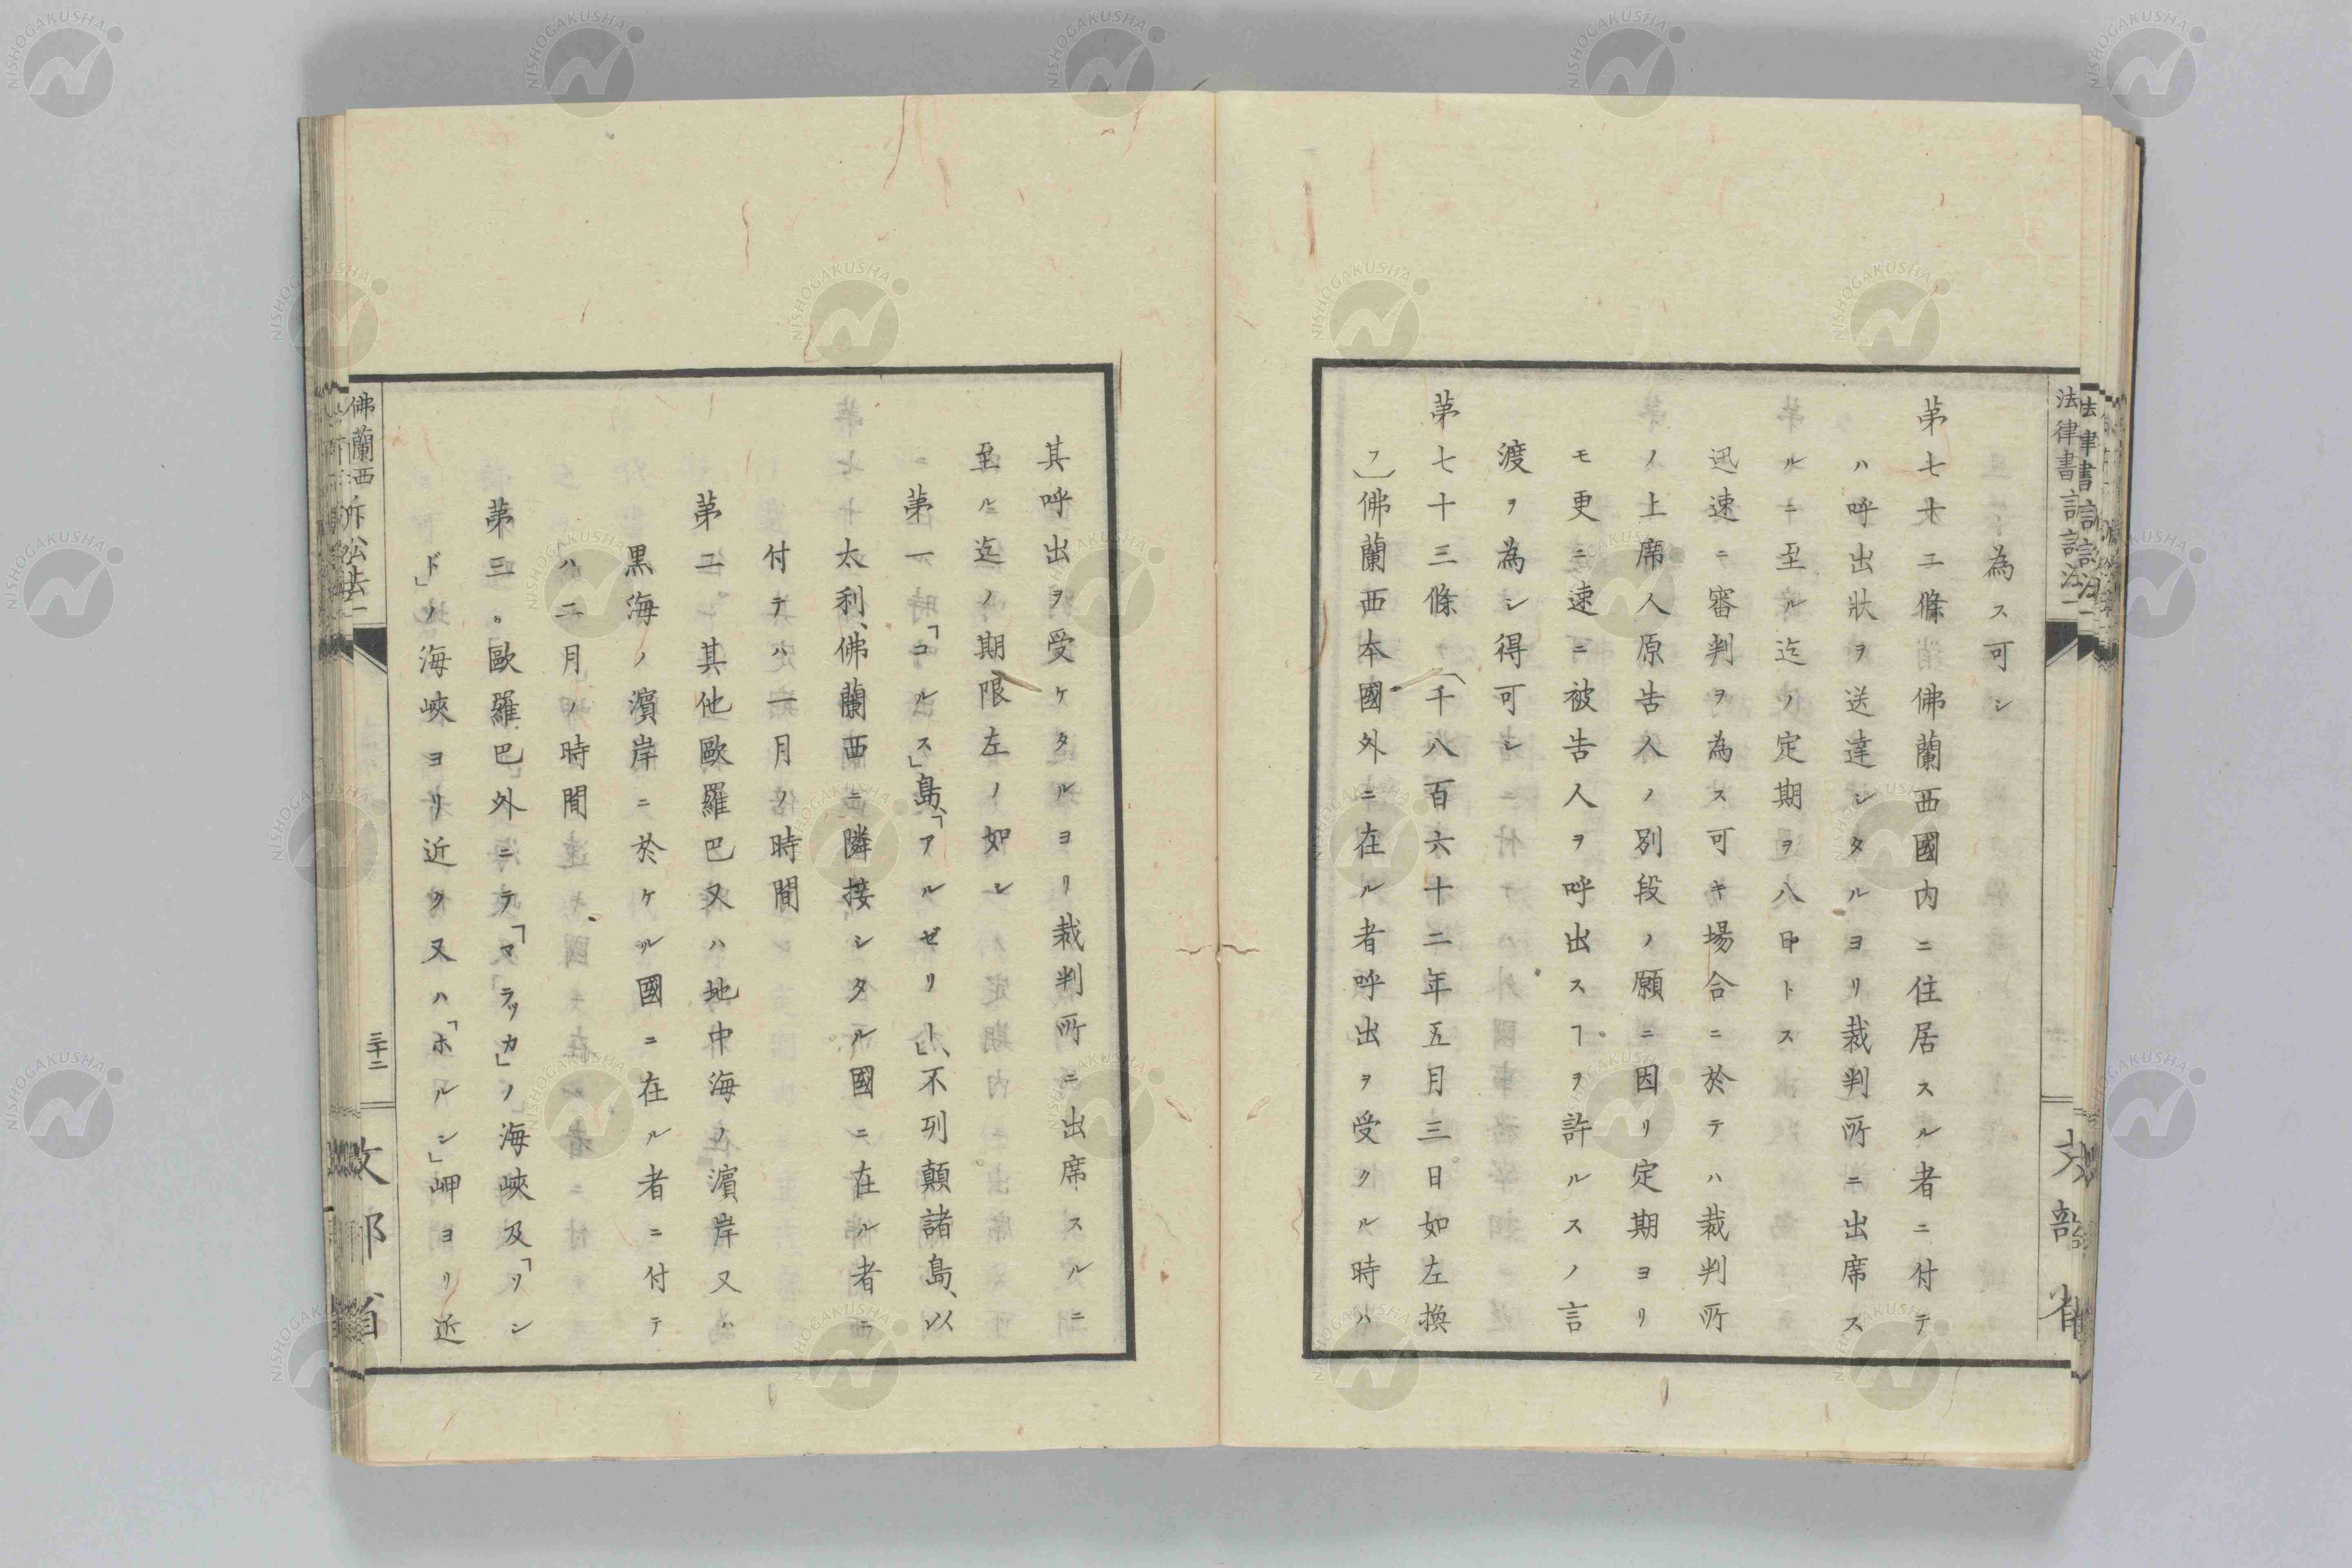 為ス可シ
第七十二條佛蘭西國内ニ住居スル者ニ付テ
ハ呼出狀ヲ送達シタルヨリ裁判所ニ出席ス
ルニ至ル迄ノ定期ヲ八日トス
迅速ニ審判ヲ為ス可キ場合ニ於テハ裁判所
ノ上席人原告人ノ別段ノ願ニ因リ定期ヨリ
モ更ニ速ニ被告人ヲ呼出スヿヲ許ルスノ言
渡ヲ為シ得可シ
第七十三條「千八百六十二年五月三日如左換
フ」佛蘭西本國外ニ在ル者呼出ヲ受クル時ハ
其呼出ヲ受ケタルヨリ裁判所ニ出席スルニ
至ル迄ノ期限左ノ如シ
第一「コルス」島、「アルゼリー」、不列顛諸島、以
太利、佛蘭西ニ隣接シタル國ニ在ル者ニ
付テハ一月ノ時間
第二 其他歐羅巴又ハ地中海ノ濵岸又ハ
黒海ノ濵岸ニ於ケル國ニ在ル者ニ付テ
ハ二月ノ時間
第三。歐羅巴外ニテ「マラッカ」ノ海峽及「リシ
ド」ノ海峽ヨリ近ク又ハ「ホルン」岬ヨリ近
佛蘭西訴訟法一
三十二
文部省
NISHOGAKUSHA